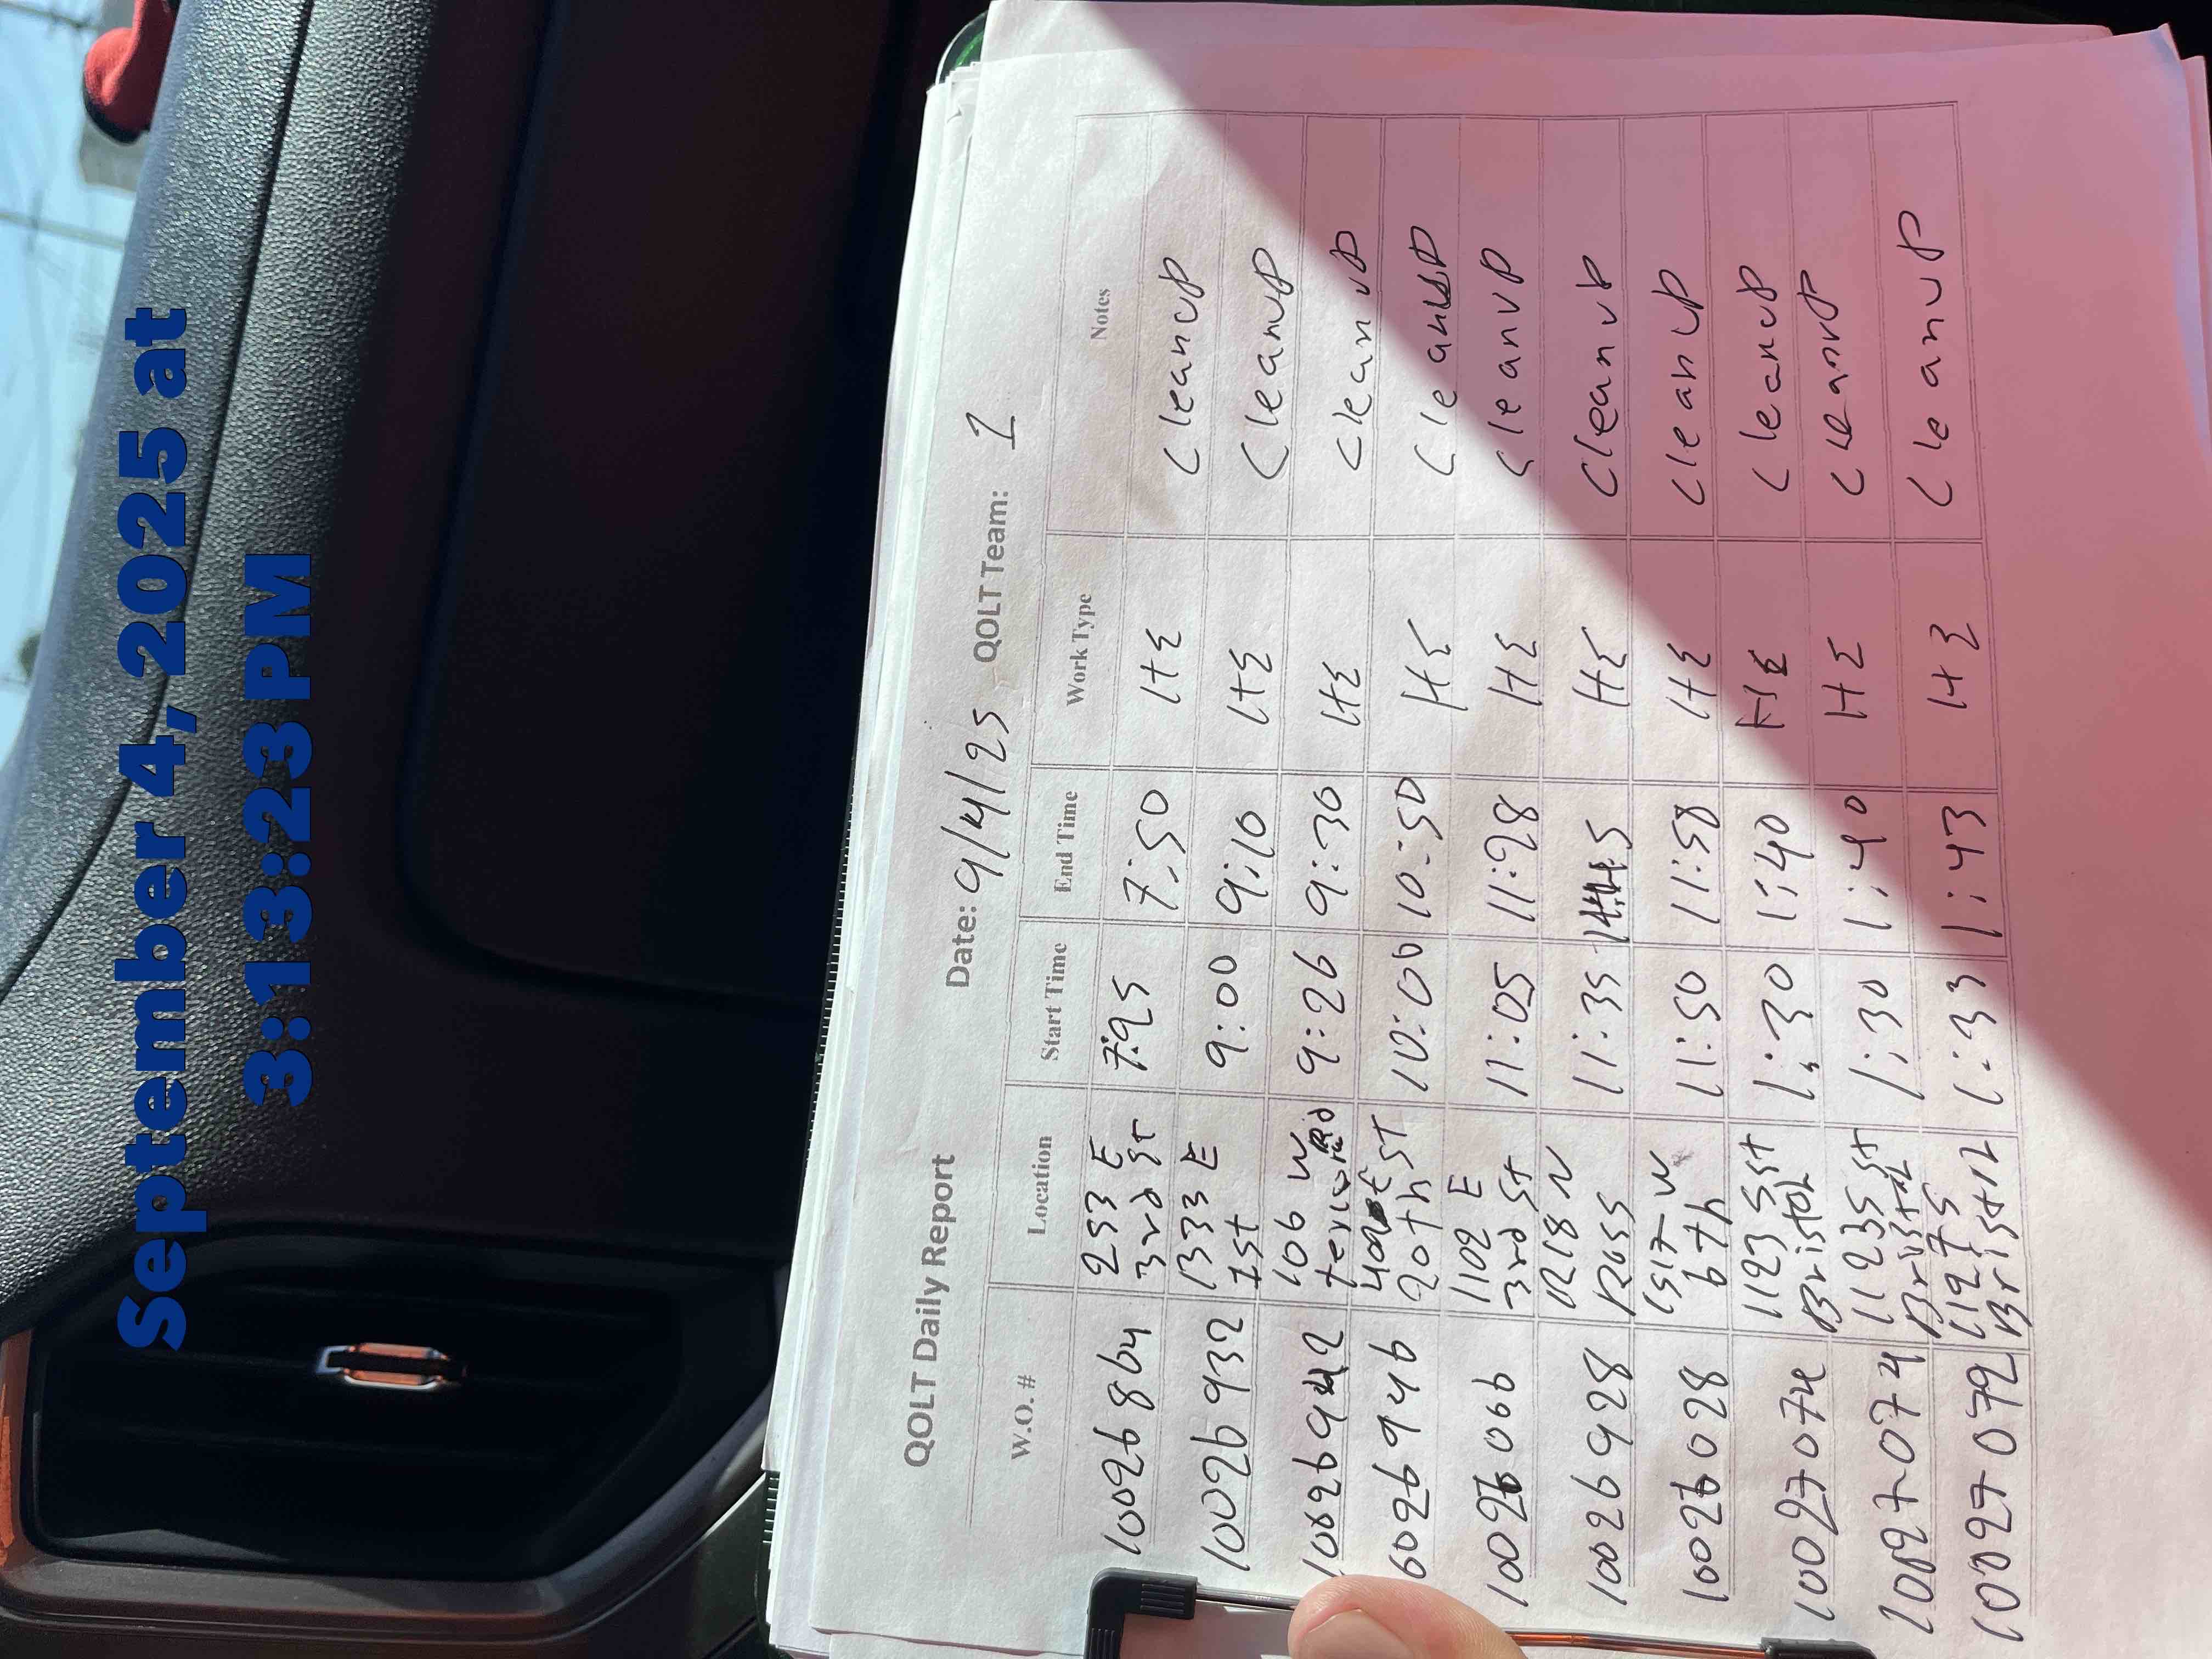 September 4, 2025 at
3:13:23 PM
QOLT Daily Report Date: 9/4/25 QOLT Team: 1
W.O. # Location Start Time End Time Work Type Notes
10026864 253 E 3rd St 7:25 7:50 HE Cleanup
10026932 1333 E 1st 9:00 9:10 HE Cleanup
106 W 9:26 9:30 HE Cleanup
10026946 20th ST 10:00 10:50 HE Cleanup
1102 E 3rd St 11:05 11:28 HE Cleanup
10026928 1218 N Ross 11:35 HE Cleanup
W 6th 11:50 11:58 HE Cleanup
10027074 1123 S Bristol St 1:30 1:40 HE Cleanup
10027074 1123 S Bristol St 1:30 1:40 HE Cleanup
10027072 1127 S Bristol 1:33 1:43 HE Cleanup